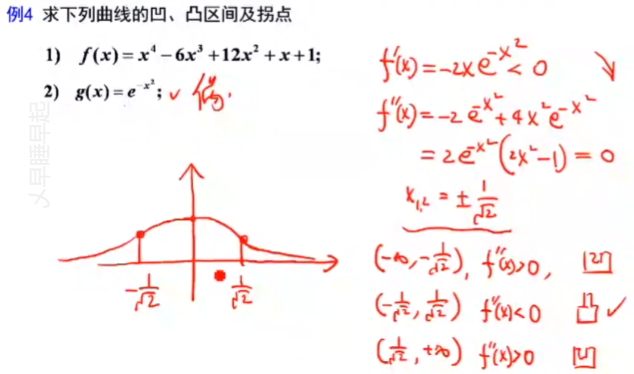 例4 求下列曲线的凹、凸区间及拐点
1) f(x)=x⁴-6x³+12x²+x+1;
2) g(x)=e^{-x²}; ✓ 偶.
-1/√2
1/√2
f'(x)=-2xe^{-x²}<0 ↘
f''(x)=-2e^{-x²}+4x²e^{-x²}
=2e^{-x²}(2x²-1)=0
x₁,₂=±1/√2
(-∞,-1/√2), f''(x)>0, 凹
(-1/√2,1/√2) f''(x)<0 凸 ✓
(1/√2,+∞) f''(x)>0 凹
早睡早起